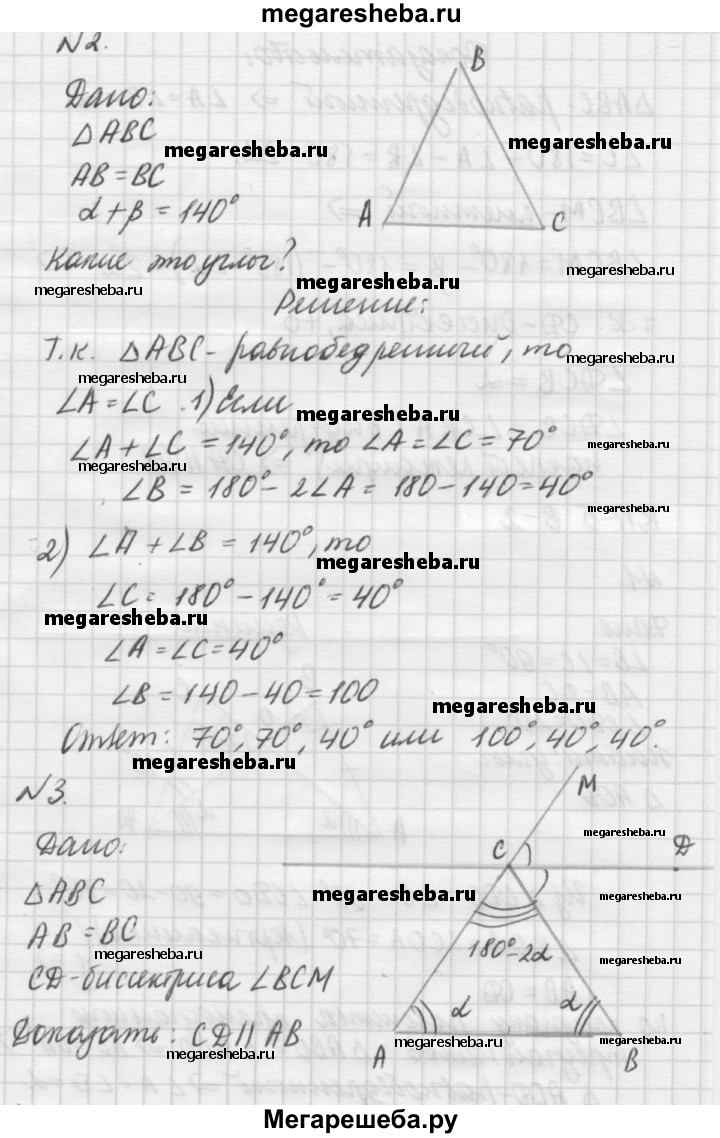 megaresheba.ru
N2.
Дано:
△ABC
AB = BC
α + β = 140°
Какие это углы?
B
A
C
Решение:
Т.к. △ABC - равнобедренный, то
∠A = ∠C . 1) Если
∠A + ∠C = 140°, то ∠A = ∠C = 70°
∠B = 180° - 2∠A = 180 - 140 = 40°
2) ∠A + ∠B = 140°, то
∠C = 180° - 140° = 40°
∠A = ∠C = 40°
∠B = 140 - 40 = 100
Ответ: 70°, 70°, 40° или 100°, 40°, 40°.
N3.
Дано:
△ABC
AB = BC
CD - биссектриса ∠BCM
Доказать: CD || AB
M
C
D
180° - 2α
α
α
A
B
megaresheba.ru
megaresheba.ru
megaresheba.ru
megaresheba.ru
megaresheba.ru
megaresheba.ru
megaresheba.ru
megaresheba.ru
megaresheba.ru
megaresheba.ru
megaresheba.ru
megaresheba.ru
megaresheba.ru
megaresheba.ru
megaresheba.ru
megaresheba.ru
megaresheba.ru
megaresheba.ru
megaresheba.ru
megaresheba.ru
megaresheba.ru
Мегарешеба.ру